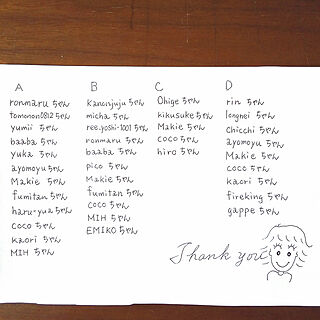 A
ronmaru ちゃん
tomonon0812 ちゃん
yumii ちゃん
baaba ちゃん
yuka ちゃん
ayomoyu ちゃん
Makie ちゃん
fumitan ちゃん
haru-yua ちゃん
coco ちゃん
kaori ちゃん
MIH ちゃん
B
kancnjuju ちゃん
micha ちゃん
ree.yoshi-1001 ちゃん
ronmaru ちゃん
baaba ちゃん
pico ちゃん
Makie ちゃん
fumitan ちゃん
coco ちゃん
MIH ちゃん
EMIKO ちゃん
C
Ohige ちゃん
kikusuke ちゃん
Makie ちゃん
coco ちゃん
hiro ちゃん
D
rin ちゃん
longnei ちゃん
chicchi ちゃん
ayomoyu ちゃん
Makie ちゃん
coco ちゃん
kaori ちゃん
fireking ちゃん
gappe ちゃん
Thank you